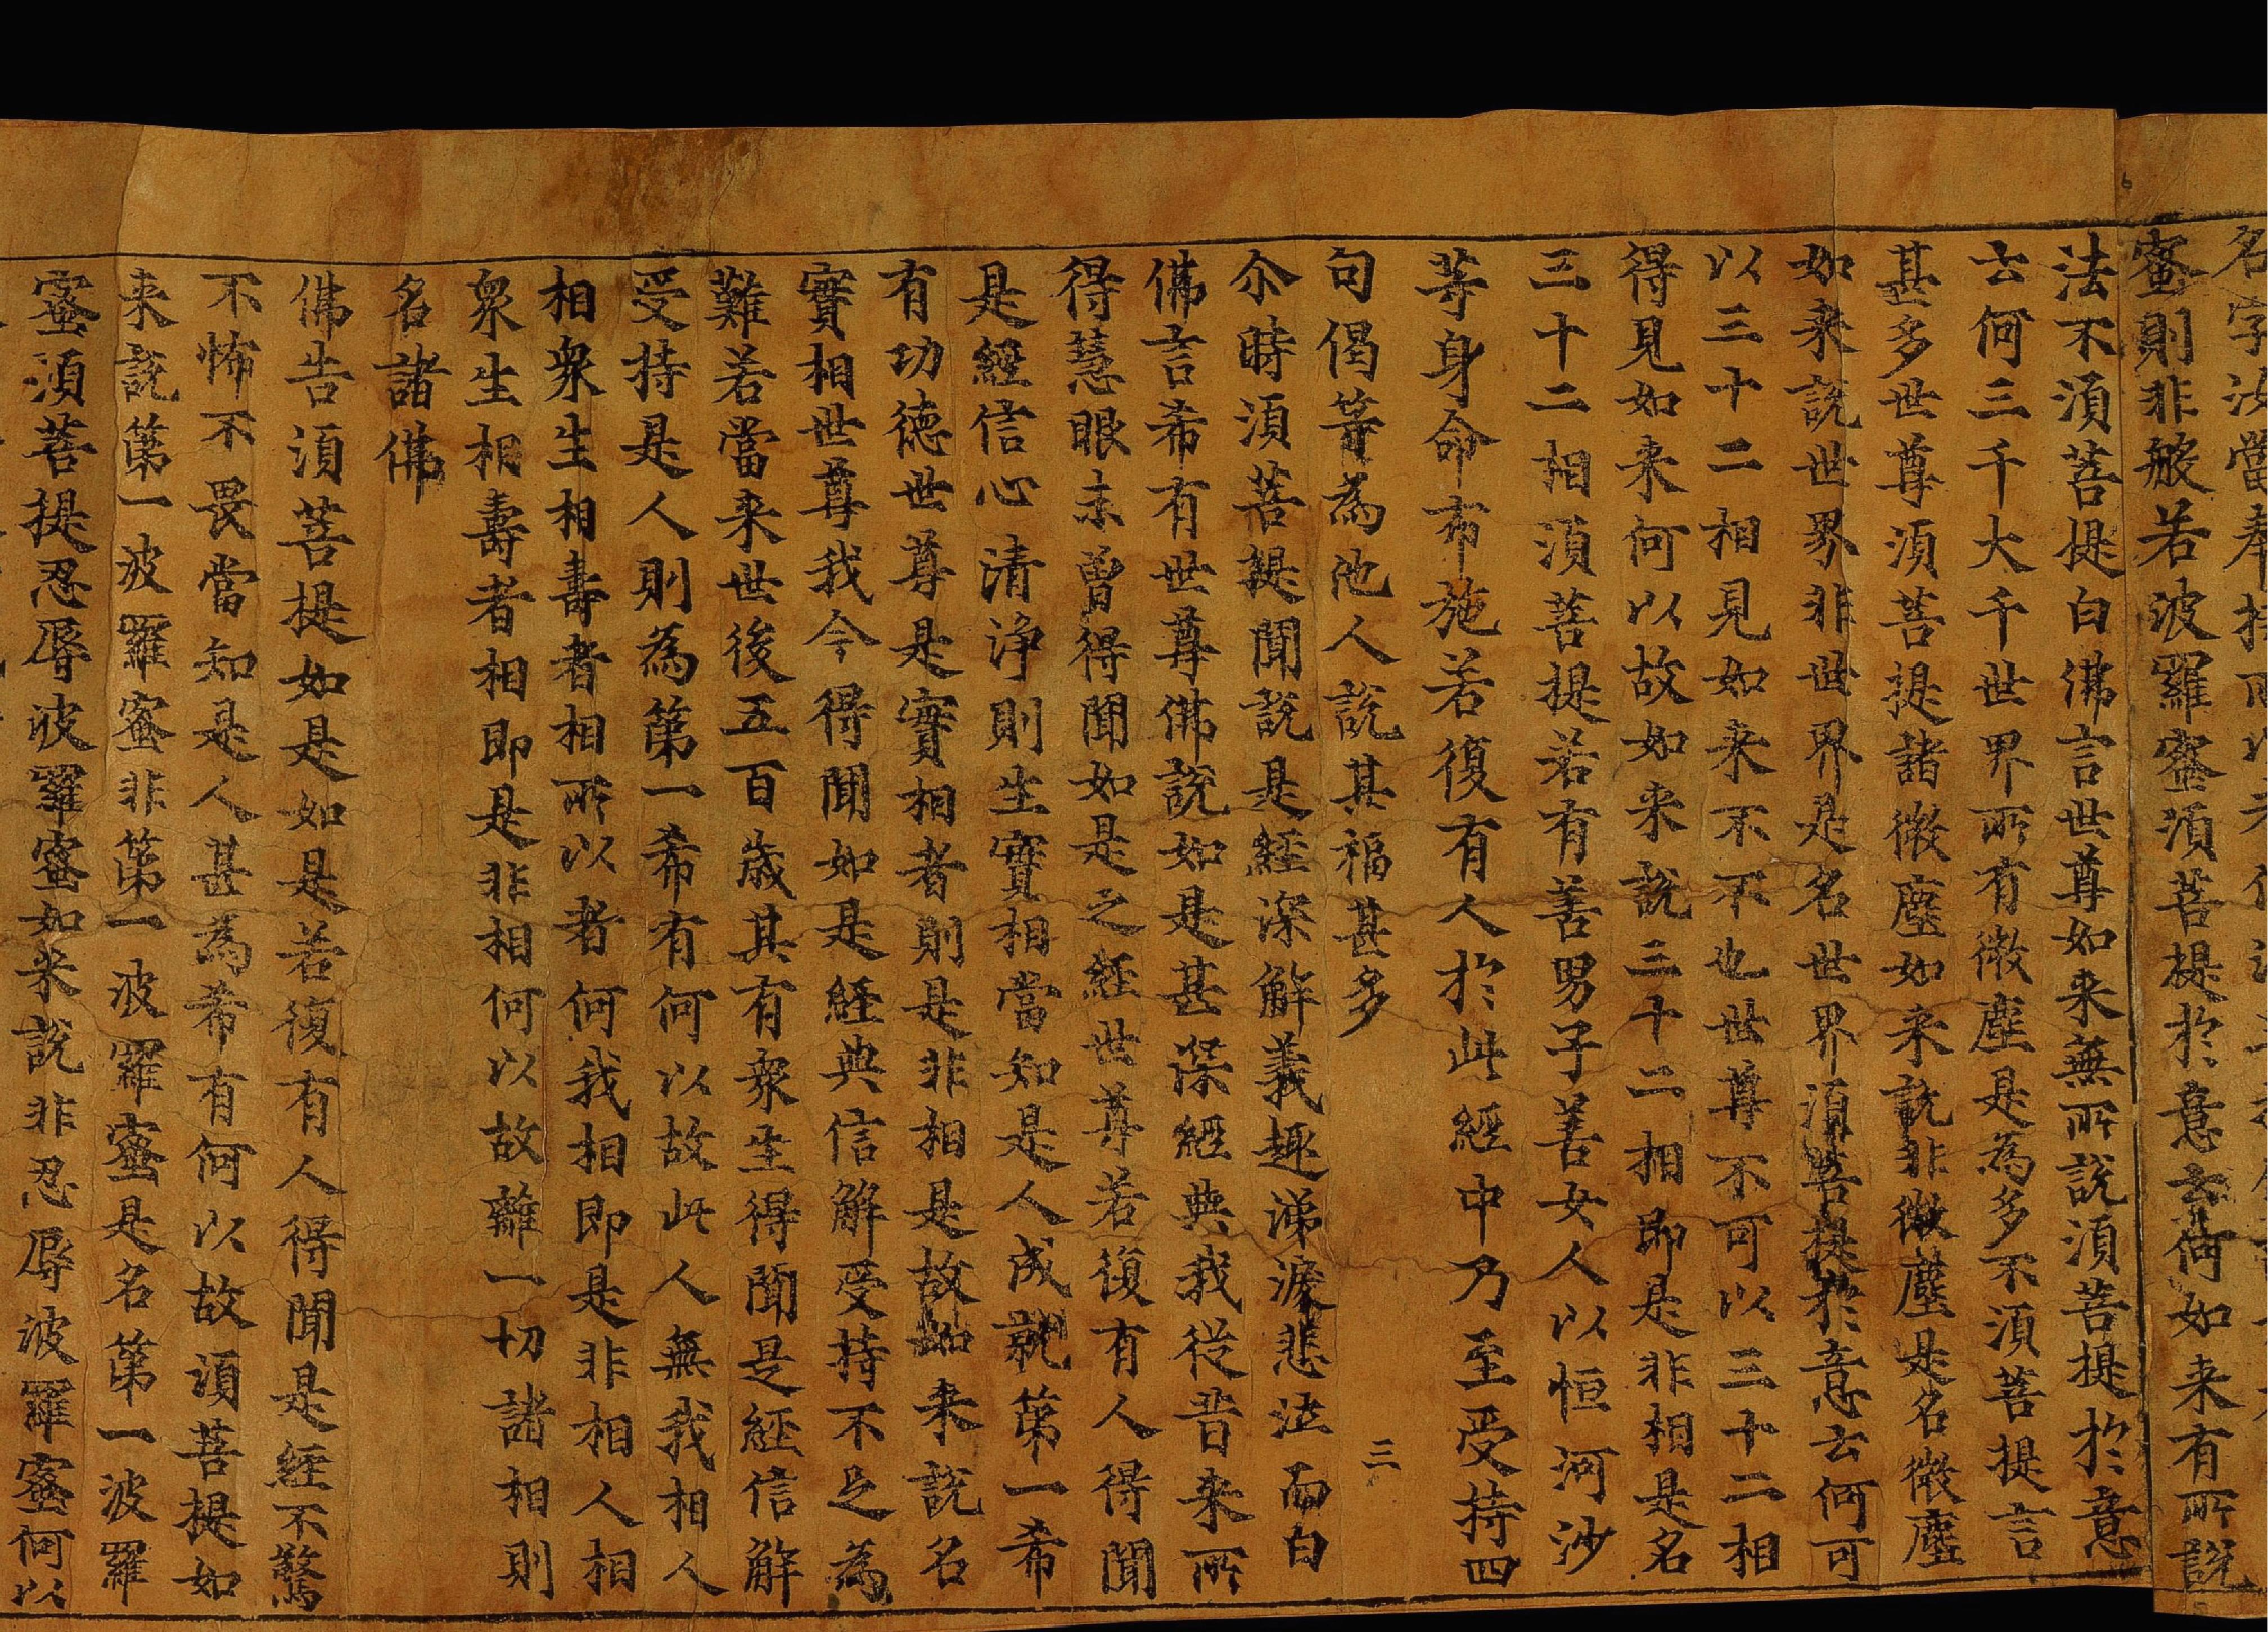 名字汝當奉持所以者
蜜則非般若波羅蜜須菩提於意云何如来有所說
法不須菩提白佛言世尊如来無所說須菩提於意
云何三千大千世界所有微塵是為多不須菩提言
甚多世尊須菩提諸微塵如来說非微塵是名微塵
如来說世界非世界是名世界須菩提於意云何可
以三十二相見如来不不也世尊不可以三十二相
得見如来何以故如来說三十二相即是非相是名
三十二相須菩提若有善男子善女人以恒河沙
等身命布施若復有人於此經中乃至受持四
句偈等為他人說其福甚多
三
尒時須菩提聞說是經深解義趣涕淚悲泣而白
佛言希有世尊佛說如是甚深經典我從昔来所
得慧眼未曾得聞如是之經世尊若復有人得聞
是經信心清淨則生實相當知是人成就第一希
有功德世尊是實相者則是非相是故如来說名
實相世尊我今得聞如是經典信解受持不足為
難若當来世後五百歲其有衆生得聞是經信解
受持是人則為第一希有何以故此人無我相人
相衆生相壽者相所以者何我相即是非相人相
衆生相壽者相即是非相何以故離一切諸相則
名諸佛
佛告須菩提如是如是若復有人得聞是經不驚
不怖不畏當知是人甚為希有何以故須菩提如
来說第一波羅蜜非第一波羅蜜是名第一波羅
蜜須菩提忍辱波羅蜜如来說非忍辱波羅蜜何以